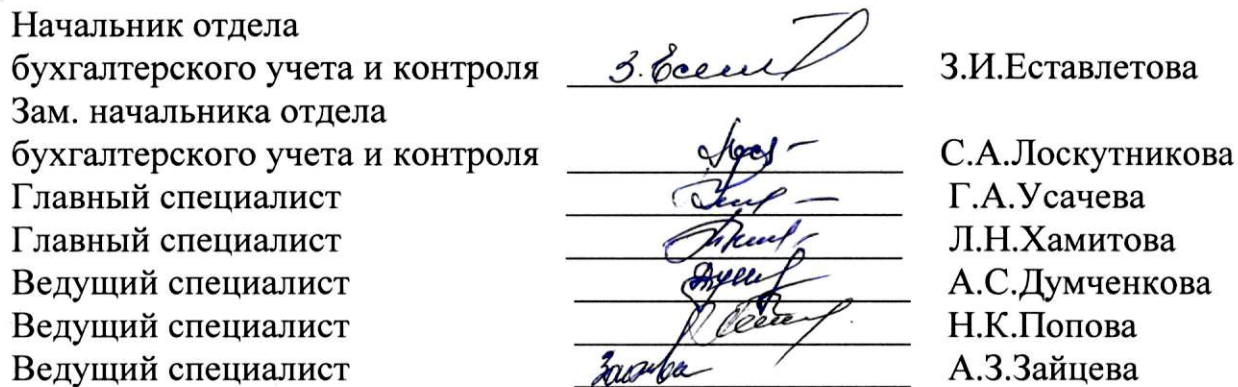 Начальник отдела
бухгалтерского учета и контроля З.И.Еставлетова
Зам. начальника отдела
бухгалтерского учета и контроля С.А.Лоскутникова
Главный специалист Г.А.Усачева
Главный специалист Л.Н.Хамитова
Ведущий специалист А.С.Думченкова
Ведущий специалист Н.К.Попова
Ведущий специалист А.З.Зайцева